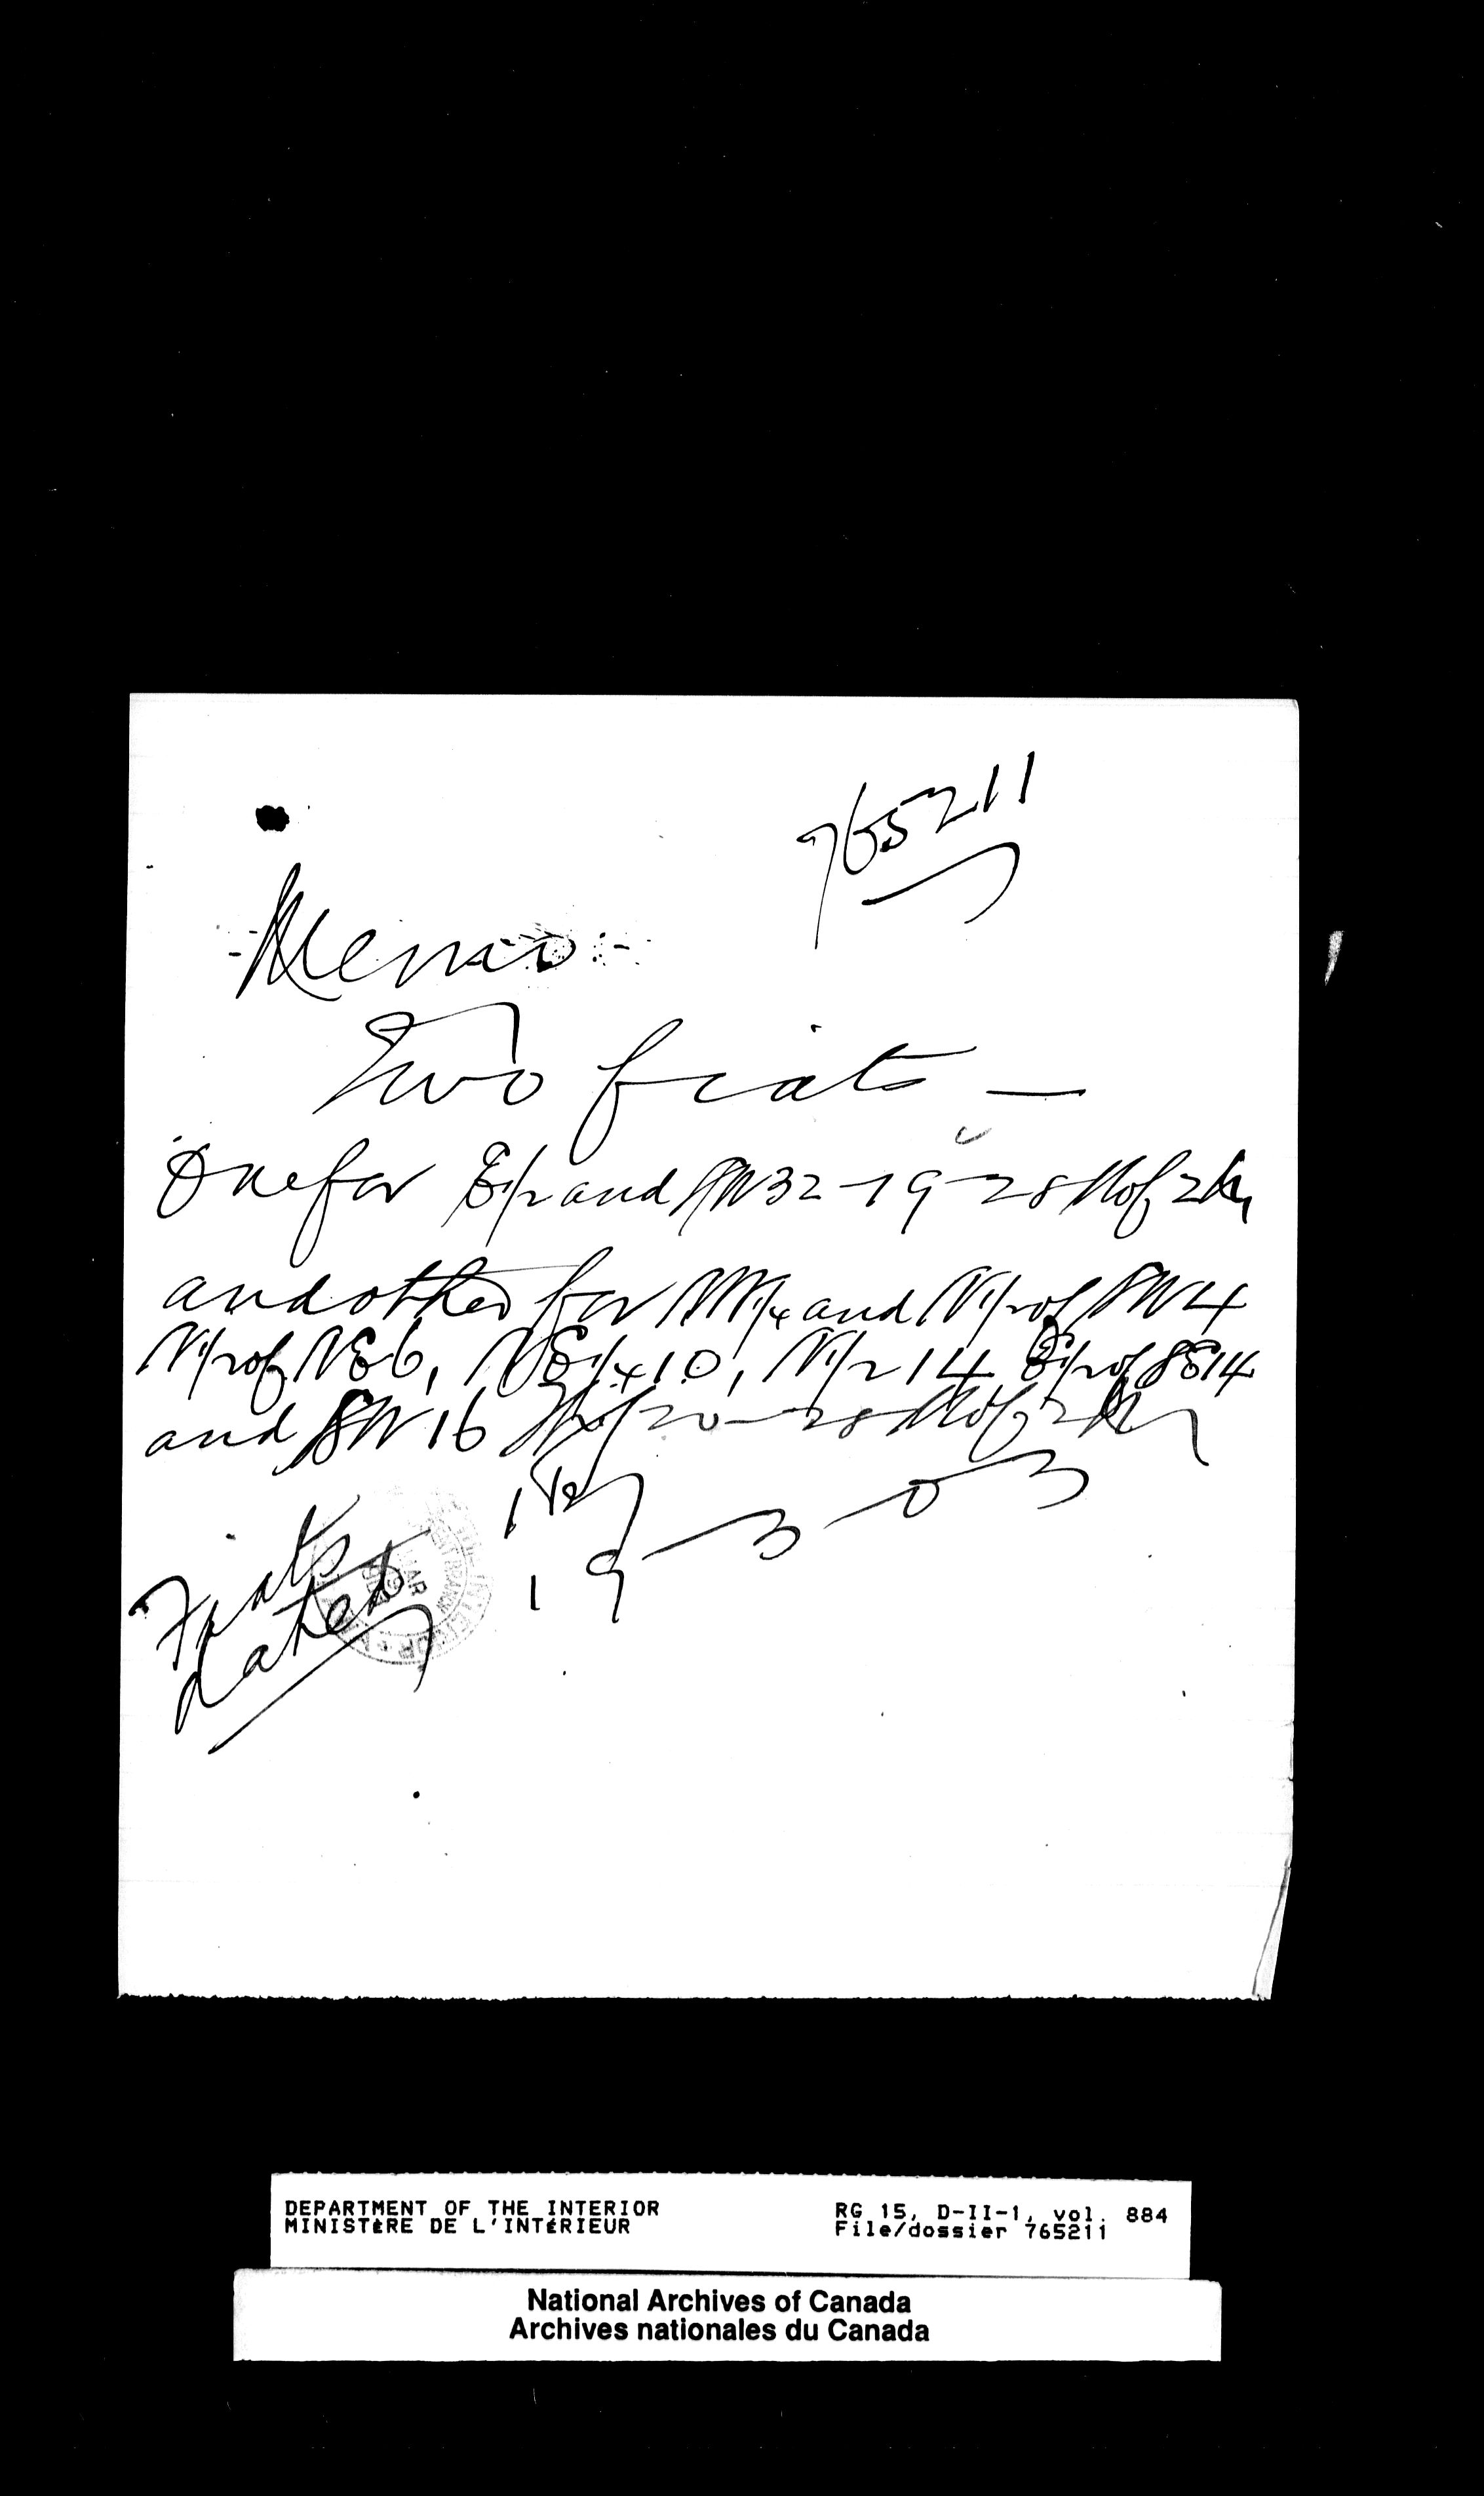 765211
Memo:-
Two fiats —
One for E1/2 and NW 32-19-28 W of 2nd
and other for NW1/4 and N1/2 of SW 4
N1/2 of NE 6, NE1/4 10, N1/2 14 E1/2 of SE 14
and SW 16 20-28 W of 2nd
19-3-03
Fiats
Later
DEPARTMENT OF THE INTERIOR
MINISTÈRE DE L'INTÉRIEUR
RG 15, D-II-1, vol. 884
File/dossier 765211
National Archives of Canada
Archives nationales du Canada